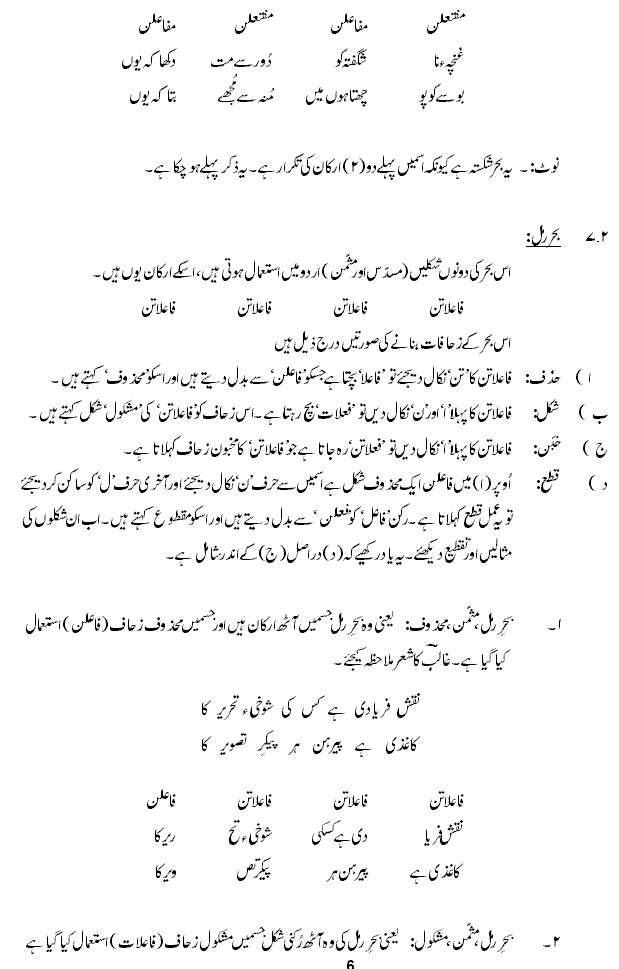 مفتعلن مفاعلن مفتعلن مفاعلن
غنچہء نا شگفتہ کو دُور سے مت دکھا کہ یوں
بوسے کو پو چھتا ہوں میں مُنہ سے مُجھے بتا کہ یوں
نوٹ:۔ یہ بحر شکستہ ہے کیونکہ اسمیں پہلے دو (۲) ارکان کی تکرار ہے۔ یہ ذکر پہلے ہو چکا ہے۔
۷.۲ بحر رمل:
اس بحر کی دونوں شکلیں (مسدّس اور مثمّن) اردو میں استعمال ہوتی ہیں، اسکے ارکان یوں ہیں۔
فاعلاتن فاعلاتن فاعلاتن فاعلاتن
اس بحر کے زحافات بنانے کی صورتیں درج ذیل ہیں
ا) حذف: فاعلاتن کا ’تن‘ نکال دیجئے تو ’فاعلا‘ بچتا ہے جسکو ’فاعلن‘ سے بدل دیتے ہیں اور اسکو ’محذوف‘ کہتے ہیں۔
ب) شکل: فاعلاتن کا پہلا ’ا‘ اور ’ن‘ نکال دیں تو ’فعلات‘ بچ رہتا ہے۔ اس زحاف کو ’فاعلاتن‘ کی ’مشکول‘ شکل کہتے ہیں۔
ج) خبُن: فاعلاتن کا پہلا ’ا‘ نکال دیں تو ’فعلاتن‘ رہ جاتا ہے جو ’فاعلاتن‘ کا مخبون زحاف کہلاتا ہے۔
د) قطع: اُوپر (ا) میں فاعلن ایک محذوف شکل ہے اسمیں سے حرف ’ن‘ نکال دیجئے اور آخری حرف ’ل‘ کو ساکن کر دیجئے
تو یہ عمل قطع کہلاتا ہے۔ رکن ’فاعل‘ کو ’فعلن‘ سے بدل دیتے ہیں اور اسکو مقطوع کہتے ہیں۔ اب ان شکلوں کی
مثالیں اور تقطیع دیکھئے۔ یہ یاد رکھیے کہ (د) دراصل (ج) کے اندر شامل ہے۔
۱۔ بحرِ رمل، مثمّن، محذوف: یعنی وہ بحرِ رمل جسمیں آٹھ ارکان ہیں اور جسمیں محذوف زحاف (فاعلن) استعمال
کیا گیا ہے۔ غالبؔ کا شعر ملاحظہ کیجئے۔
نقش فریادی ہے کس کی شوخیء تحریر کا
کاغذی ہے پیرہن ہر پیکرِ تصویر کا
فاعلاتن فاعلاتن فاعلاتن فاعلن
نقش فریا دی ہے کسکی شوخیء تح ریر کا
کاغذی ہے پیرہن ہر پیکرِ تص ویر کا
۲۔ بحرِ رمل، مثمّن، مشکول: یعنی بحرِ رمل کی وہ آٹھ رُکنی شکل جسمیں مشکول زحاف (فاعلات) استعمال کیا گیا ہے
6